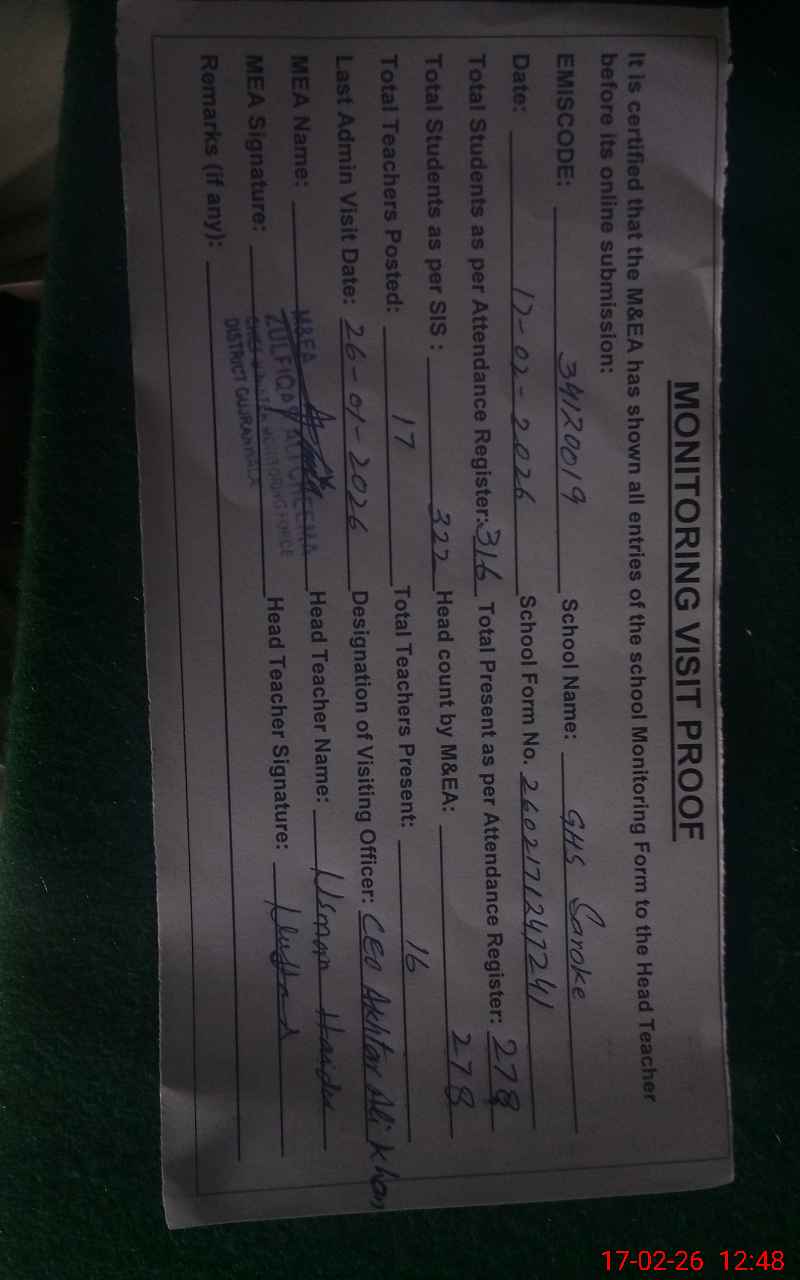 MONITORING VISIT PROOF
It is certified that the M&EA has shown all entries of the school Monitoring Form to the Head Teacher
before its online submission:
EMISCODE: 34120019 School Name: GHS Saroke
Date: 17-02-2026 School Form No. 2602171247241
Total Students as per Attendance Register: 316 Total Present as per Attendance Register: 278
Total Students as per SIS : 322 Head count by M&EA: 278
Total Teachers Posted: 17 Total Teachers Present: 16
Last Admin Visit Date: 26-01-2026 Designation of Visiting Officer: CEO Akhtar Ali Khan
MEA Name: M&EA Head Teacher Name: Usman Haider
ZULFIQAR ALI CHEEMA
MEA Signature: Head Teacher Signature:
CHIEF MINISTER MONITORING FORCE
DISTRICT GUJRANWALA
Remarks (if any):
17-02-26 12:48